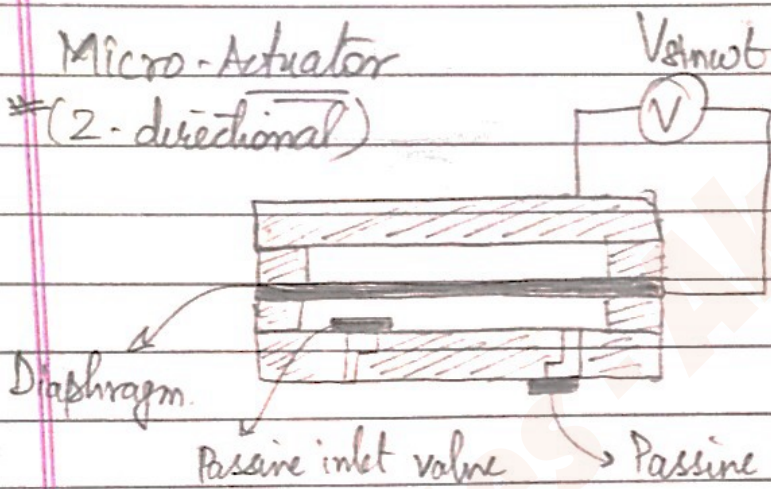 Micro-Actuator
(2-directional)
Vsinwt
V
Diaphragm.
Passive inlet valve
Passive